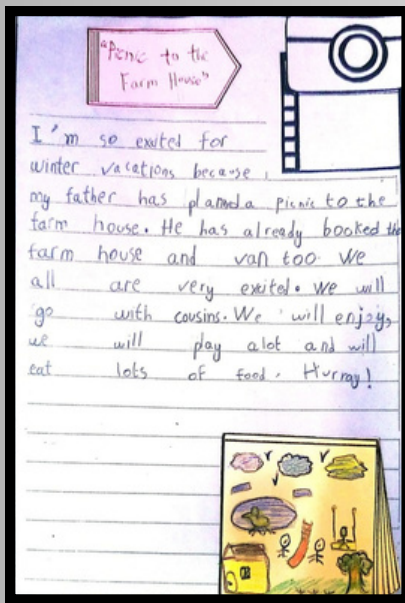 "Picnic to the
Farm House"
I'm so exited for
winter vacations because
my father has planned a picnic to the
farm house. He has already booked the
farm house and van too. We
all are very exited. We will
go with cousins. We will enjoy,
we will play alot and will
eat lots of food. Hurray!